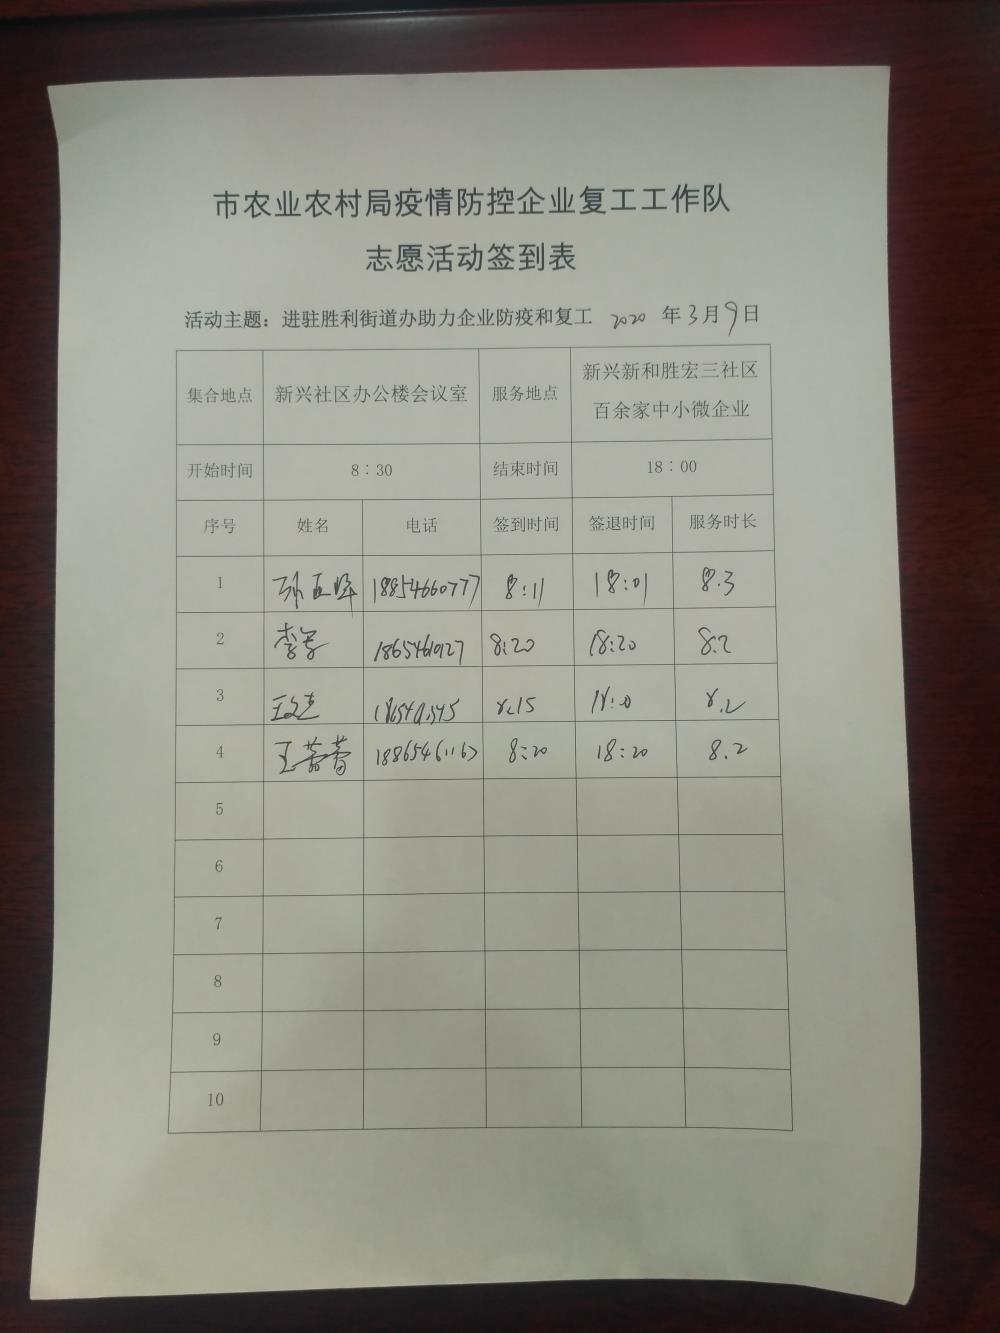 市农业农村局疫情防控企业复工工作队
志愿活动签到表
活动主题：进驻胜利街道办助力企业防疫和复工 2020 年3月9日
集合地点 新兴社区办公楼会议室 服务地点 新兴新和胜宏三社区
百余家中小微企业
开始时间 8：30 结束时间 18：00
序号 姓名 电话 签到时间 签退时间 服务时长
1 18854660777 8:11 18:01 8.3
2 李 8:20 18:20 8.2
3 8.2
4 王蕾蕾 8:20 18:20 8.2
5
6
7
8
9
10